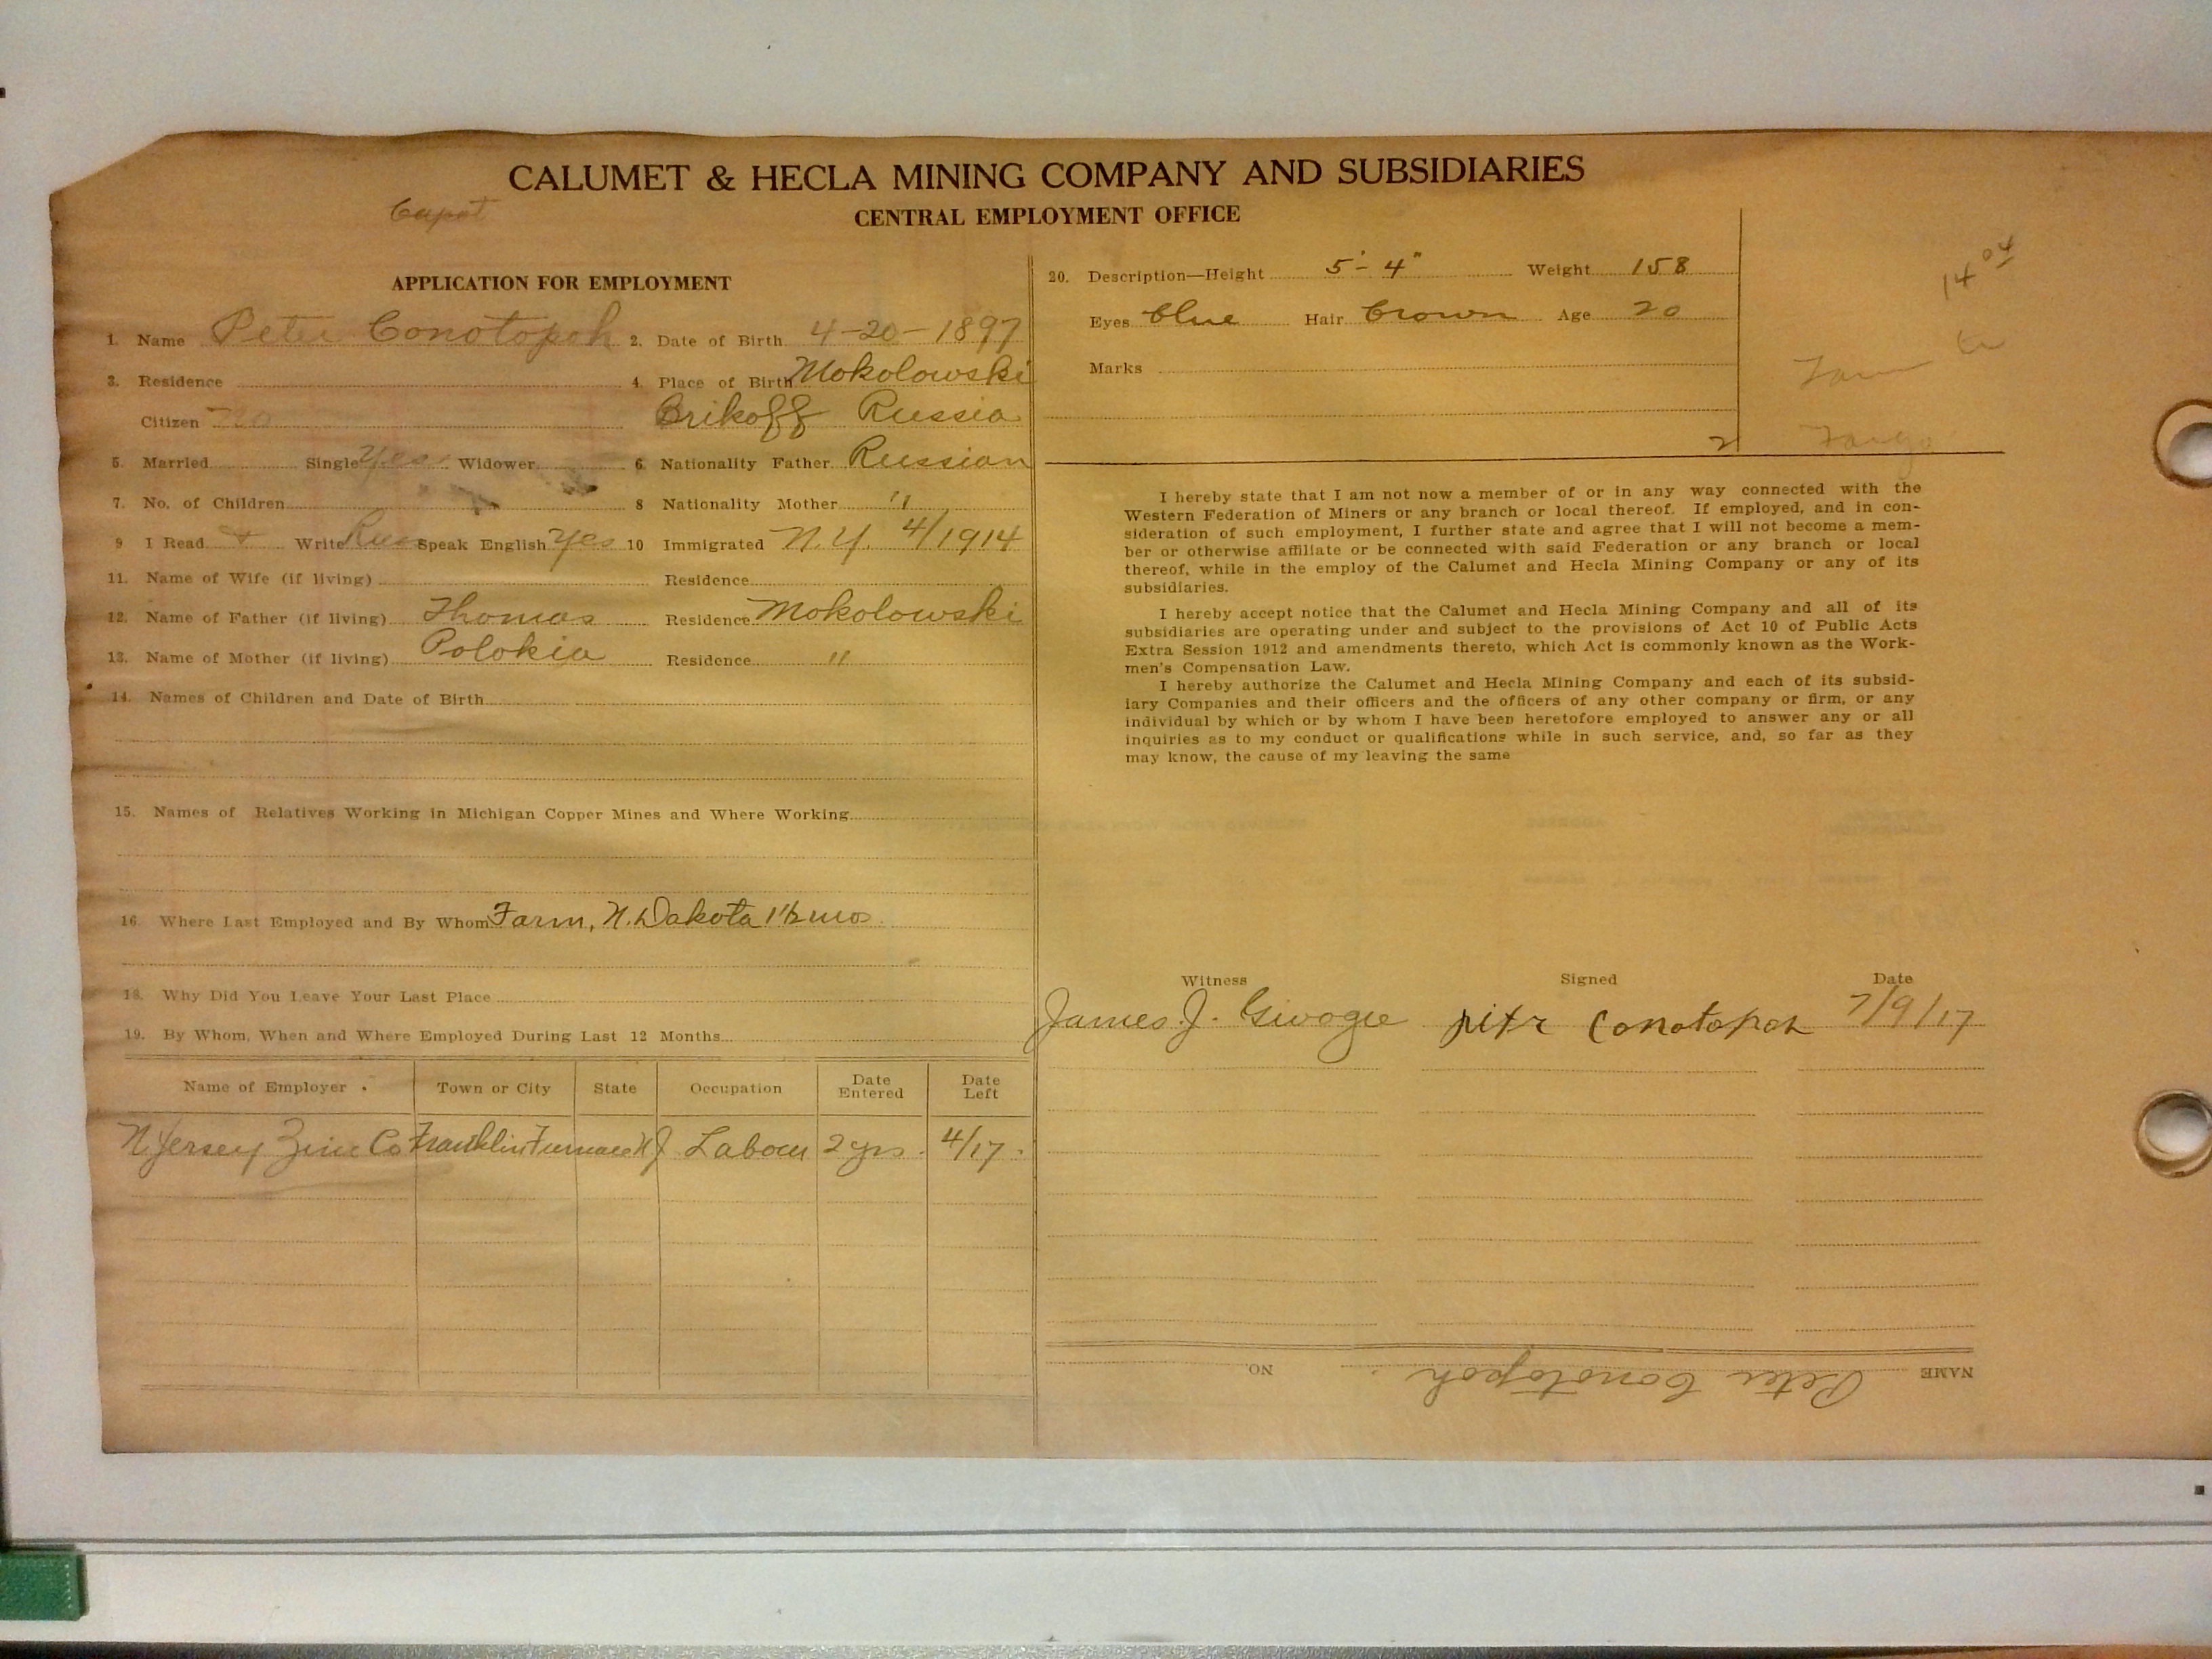 CALUMET & HECLA MINING COMPANY AND SUBSIDIARIES
CENTRAL EMPLOYMENT OFFICE
APPLICATION FOR EMPLOYMENT
1. Name Peter Conotopoh
2. Date of Birth 4-20-1897
3. Residence
4. Place of Birth Mokolowski
Citizen No
Orikoff Russia
5. Married Single Yes Widower
6. Nationality Father Russian
7. No. of Children
8 Nationality Mother "
9 I Read & Write Rus Speak English Yes
10 Immigrated N.Y. 4/1914
11. Name of Wife (if living) Residence
12. Name of Father (if living) Thomas Residence Mokolowski
13. Name of Mother (if living) Polokia Residence "
14. Names of Children and Date of Birth
15. Names of Relatives Working in Michigan Copper Mines and Where Working
16. Where Last Employed and By Whom Farm, N. Dakota 1 1/2 mos.
18. Why Did You Leave Your Last Place
19. By Whom, When and Where Employed During Last 12 Months
Name of Employer Town or City State Occupation Date Entered Date Left
N Jersey Zinc Co Franklin Furnace N J Labour 2 yrs. 4/17
20. Description—Height 5'-4" Weight 158
Eyes blue Hair brown Age 20
Marks
14 04
Fargo
I hereby state that I am not now a member of or in any way connected with the
Western Federation of Miners or any branch or local thereof. If employed, and in con-
sideration of such employment, I further state and agree that I will not become a mem-
ber or otherwise affiliate or be connected with said Federation or any branch or local
thereof, while in the employ of the Calumet and Hecla Mining Company or any of its
subsidiaries.
I hereby accept notice that the Calumet and Hecla Mining Company and all of its
subsidiaries are operating under and subject to the provisions of Act 10 of Public Acts
Extra Session 1912 and amendments thereto, which Act is commonly known as the Work-
men's Compensation Law.
I hereby authorize the Calumet and Hecla Mining Company and each of its subsid-
iary Companies and their officers and the officers of any other company or firm, or any
individual by which or by whom I have been heretofore employed to answer any or all
inquiries as to my conduct or qualifications while in such service, and, so far as they
may know, the cause of my leaving the same
Witness Signed Date
James J. pitr Conotopoh 7/9/17
NAME Peter Conotopoh NO.